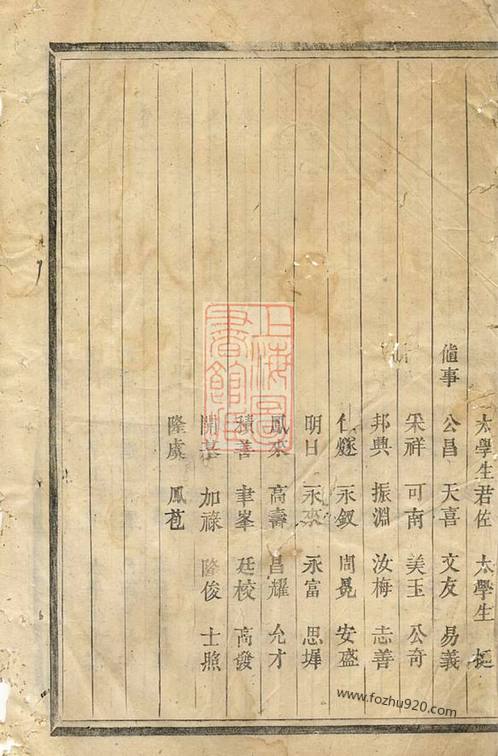 太學生若佐 太學生
値事 公昌 天喜 文友 易義
采祥 可南 美玉 公奇
邦典 振淵 汝梅 志善
仁燧 永釵 周晃 安盛
明日 永來 永富 思墀
鳳來 高壽 昌耀 允才
積善 聿峯 廷校 高發
開基 加祿 隆俊 士照
隆虞 鳳苞
上海圖書館藏
www.fozhu920.com